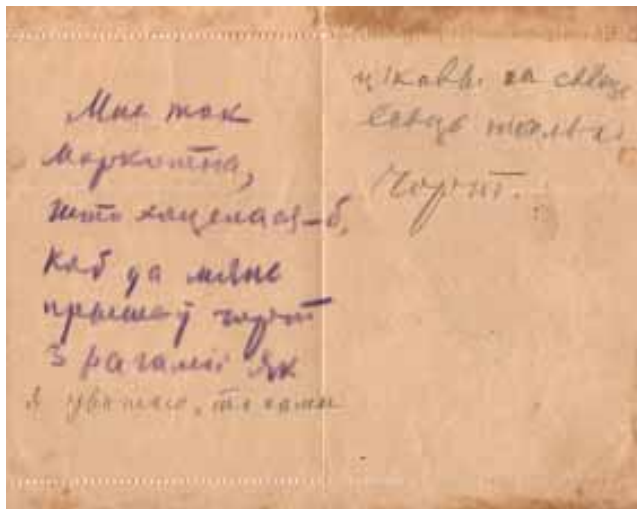 Мне так
маркотна,
што хацелася-б,
каб да мяне
прышоў чорт
з рагамі. Як
я уважаю, то самы
цікавы на свеце
гэта толькі
чорт.